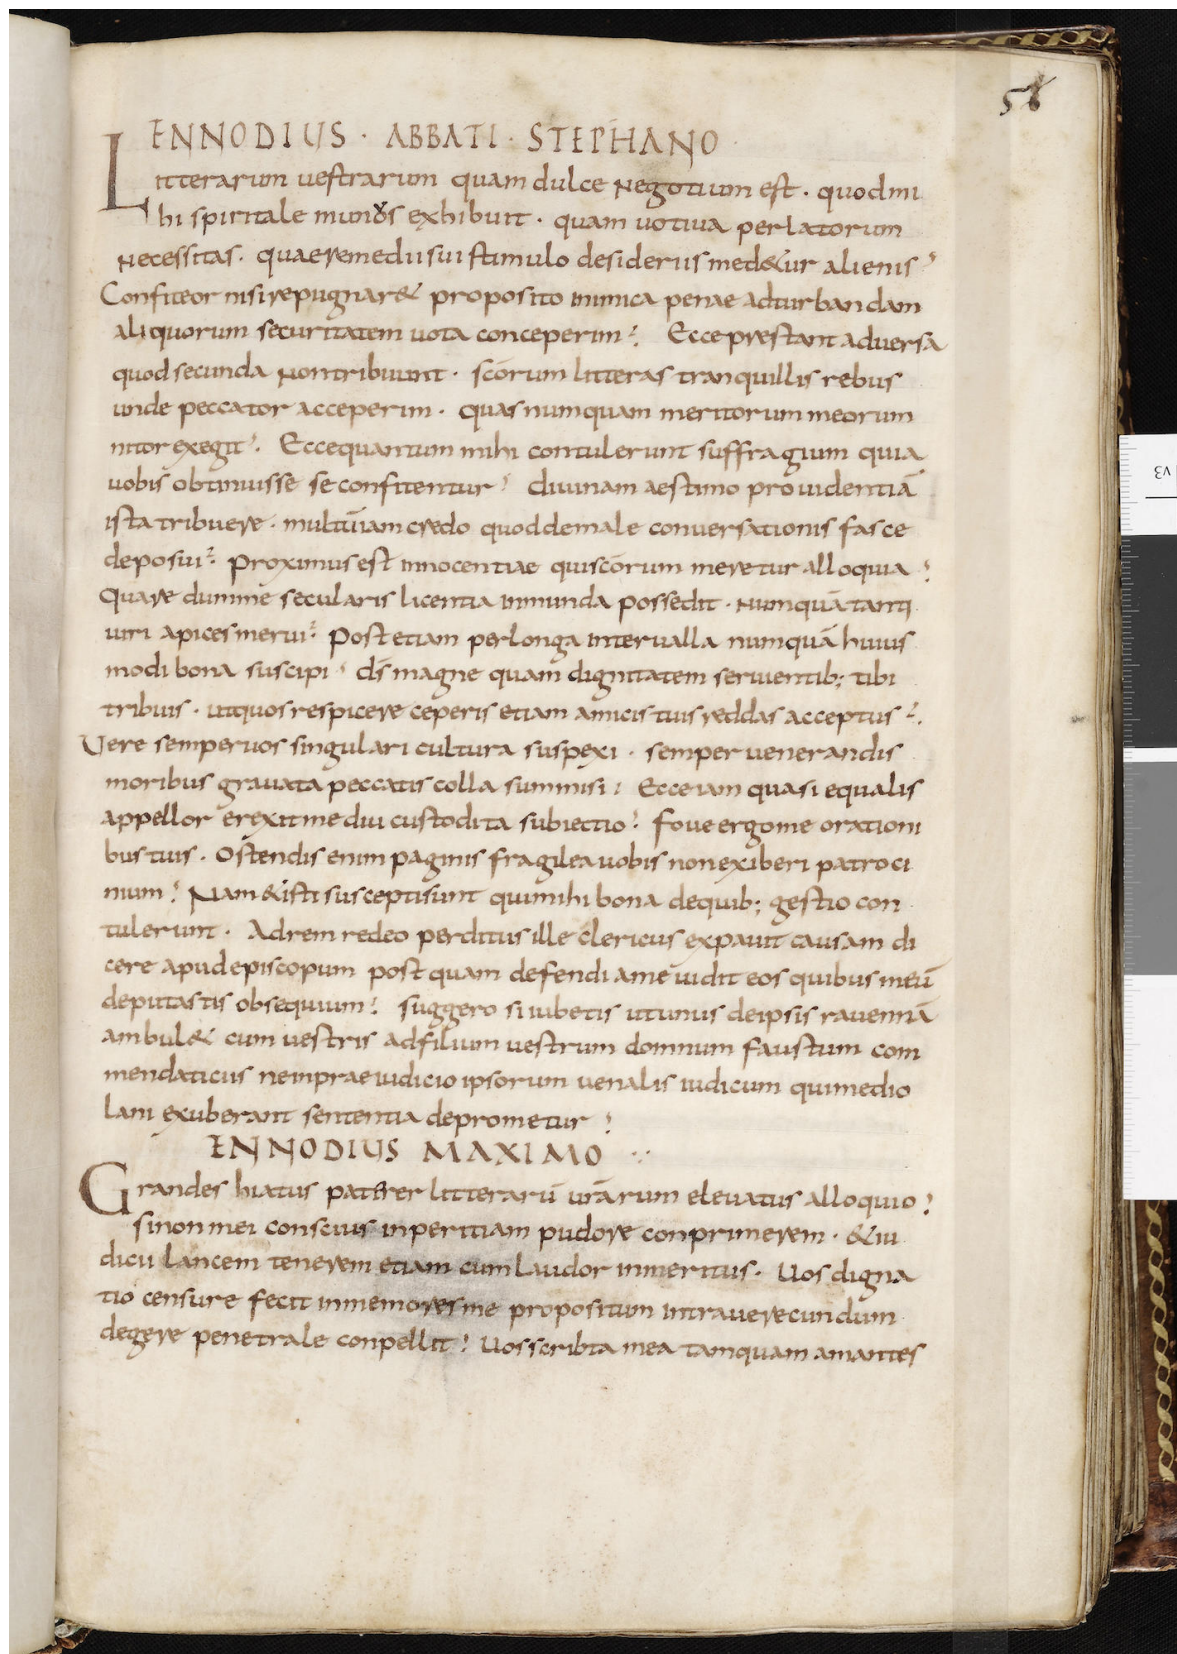 58
ENNODIUS · ABBATI · STEPHANO
Litterarum vestrarum quam dulce negotium est · quod mi
hi spiritale munus exhibuit · quam votiva perlatorum
necessitas · quae remedii sui stimulo desideriis med&ur alienis
Confiteor nisi repugnar& proposito inimica penae ad turbandam
aliquorum securitatem uota conceperim? Ecce prestant adversa
quod secunda non tribuunt · scōrum litteras tranquillis rebus
unde peccator acceperim · quas numquam meritorum meorum
nitor exegit? Ecce quantum mihi contulerunt suffragium quia
uobis obtinuisse se confitentur? divinam aestimo providentiā
ista tribuere · multū iam credo quod de male conversationis fasce
deposui? Proximus est innocentiae qui scōrum meretur alloquia?
Quare dum me secularis licentia inmunda possedit · numquā tanti
uiri apices merui? Post etiam per longa intervalla numquā huius
modi bona suscipi? d̄s magne quam dignitatem servientib; tibi
tribuis · ut quos respicere ceperis etiam amicis tuis reddas acceptus?
Vere semper uos singulari cultura suspexi · semper venerandis
moribus gravata peccatis colla summisi? Ecce iam quasi equalis
appellor erexit me diu custodita subiectio? fove ergo me orationi
bus tuis · Ostendis enim paginis fragilea uobis non exiberi patroci
nium? Nam & isti suscepti sunt qui mihi bona de quib; gestio con
tulerunt · Ad rem redeo perditus ille clericus expavit causam di
cere apud episcopum post quam defendi a me uidit eos quibus meū
deputastis obsequium? suggero si iubetis ut unus de ipsis ravennā
ambul& cum vestris ad filium vestrum domnum faustum com
mendaticiis nempe iudicio ipsorum venalis iudicum qui medio
lani exuberant sententia deprometur?
ENNODIUS MAXIMO
Grandes hiatus paterer litterarū urārum elevatus alloquio?
si non mei conscius inperitiam pudore conprimerem · & iu
dicii lancem tenerem etiam cum laudor inmeritus · Uos digna
tio censure fecit inmemores me propositum intra verecundum
degere penetrale conpellit? Uos scribta mea tamquam amantes